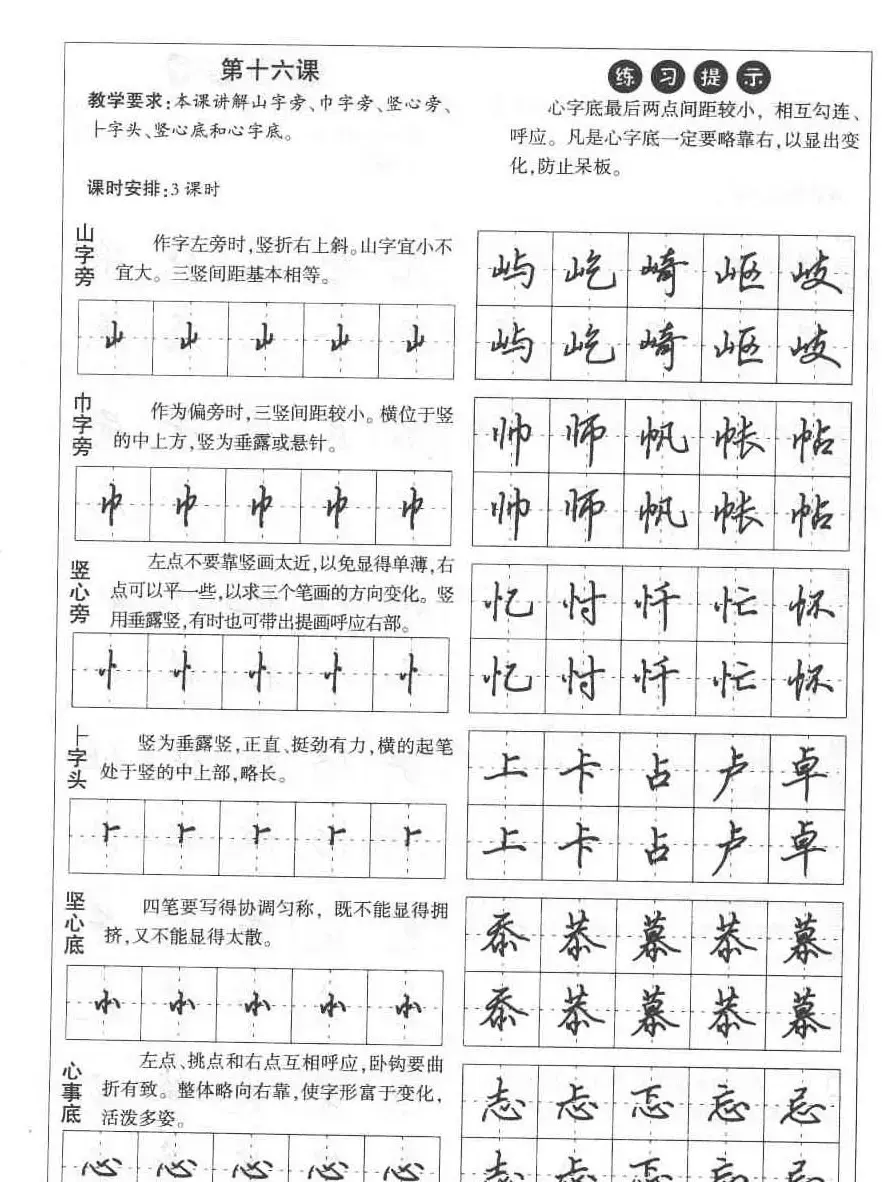 第十六课
教学要求:本课讲解山字旁、巾字旁、竖心旁、
⺊字头、竖心底和心字底。
课时安排:3课时
练习提示
心字底最后两点间距较小，相互勾连、
呼应。凡是心字底一定要略靠右,以显出变
化,防止呆板。
山字旁
作字左旁时,竖折右上斜。山字宜小不
宜大。三竖间距基本相等。
山 山 山 山 山
屿 屹 崎 岖 岐
屿 屹 崎 岖 岐
巾字旁
作为偏旁时,三竖间距较小。横位于竖
的中上方,竖为垂露或悬针。
巾 巾 巾 巾 巾
帅 师 帆 帐 帖
帅 师 帆 帐 帖
竖心旁
左点不要靠竖画太近,以免显得单薄,右
点可以平一些,以求三个笔画的方向变化。竖
用垂露竖,有时也可带出提画呼应右部。
忄 忄 忄 忄 忄
忆 忖 忏 忙 怀
忆 忖 忏 忙 怀
⺊字头
竖为垂露竖,正直、挺劲有力,横的起笔
处于竖的中上部,略长。
⺊ ⺊ ⺊ ⺊ ⺊
上 卡 占 卢 卓
上 卡 占 卢 卓
坚心底
四笔要写得协调匀称，既不能显得拥
挤,又不能显得太散。
⺗ ⺗ ⺗ ⺗ ⺗
忝 恭 慕 恭 慕
忝 恭 慕 恭 慕
心事底
左点、挑点和右点互相呼应,卧钩要曲
折有致。整体略向右靠,使字形富于变化,
活泼多姿。
心 心 心 心 心
志 忐 忑 忘 忌
志 忐 忑 忘 忌